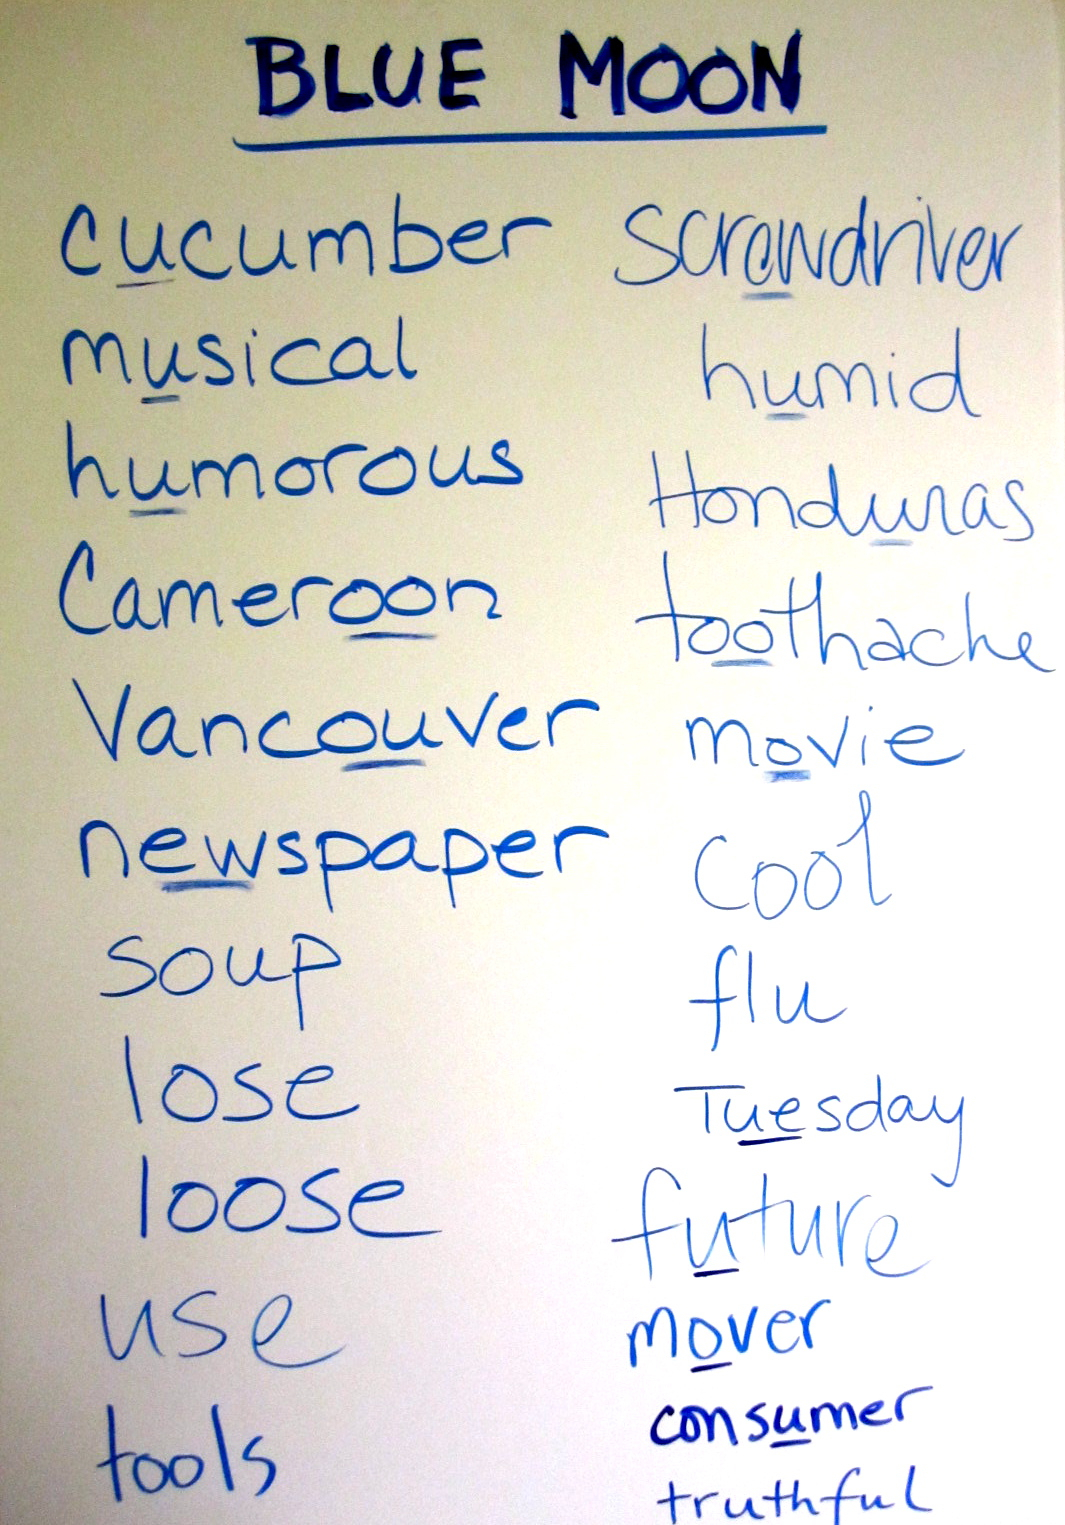 BLUE MOON
cucumber
musical
humorous
Cameroon
Vancouver
newspaper
soup
lose
loose
use
tools
screwdriver
humid
Honduras
toothache
movie
cool
flu
Tuesday
future
mover
consumer
truthful